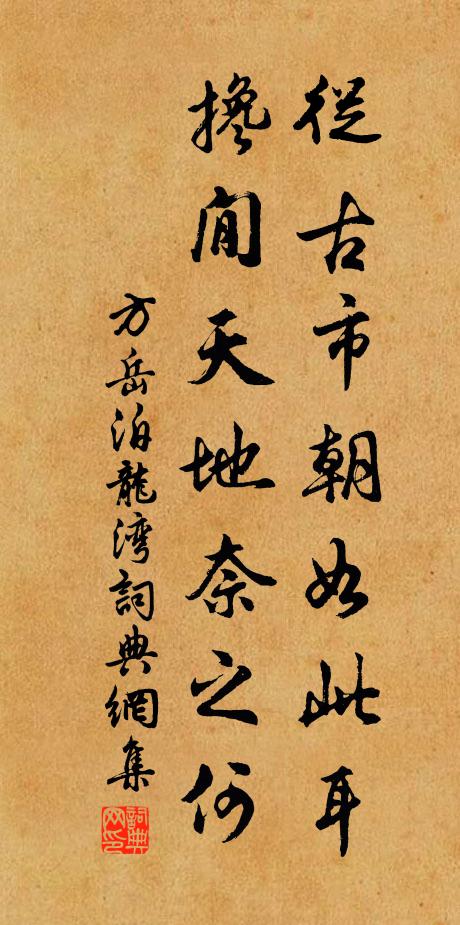 從古市朝如此耳
攙閒天地奈之何
方岳泊龍灣詞典網集
詞典網印